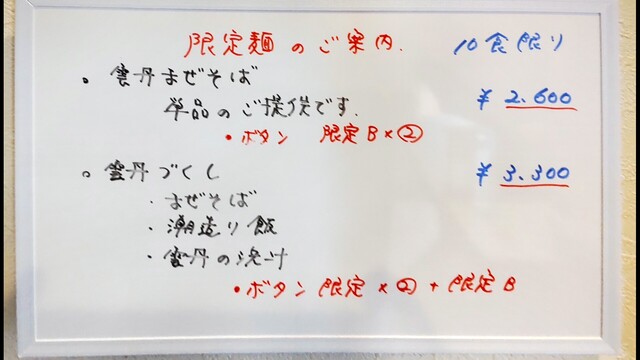 限定麺のご案内. 10食限り
。雲丹まぜそば
単品のご提供です. ¥2.600
・ボタン 限定B×②
。雲丹づくし ¥3.300
・まぜそば
・潮造り飯
・雲丹の浅汁
・ボタン 限定×② + 限定B